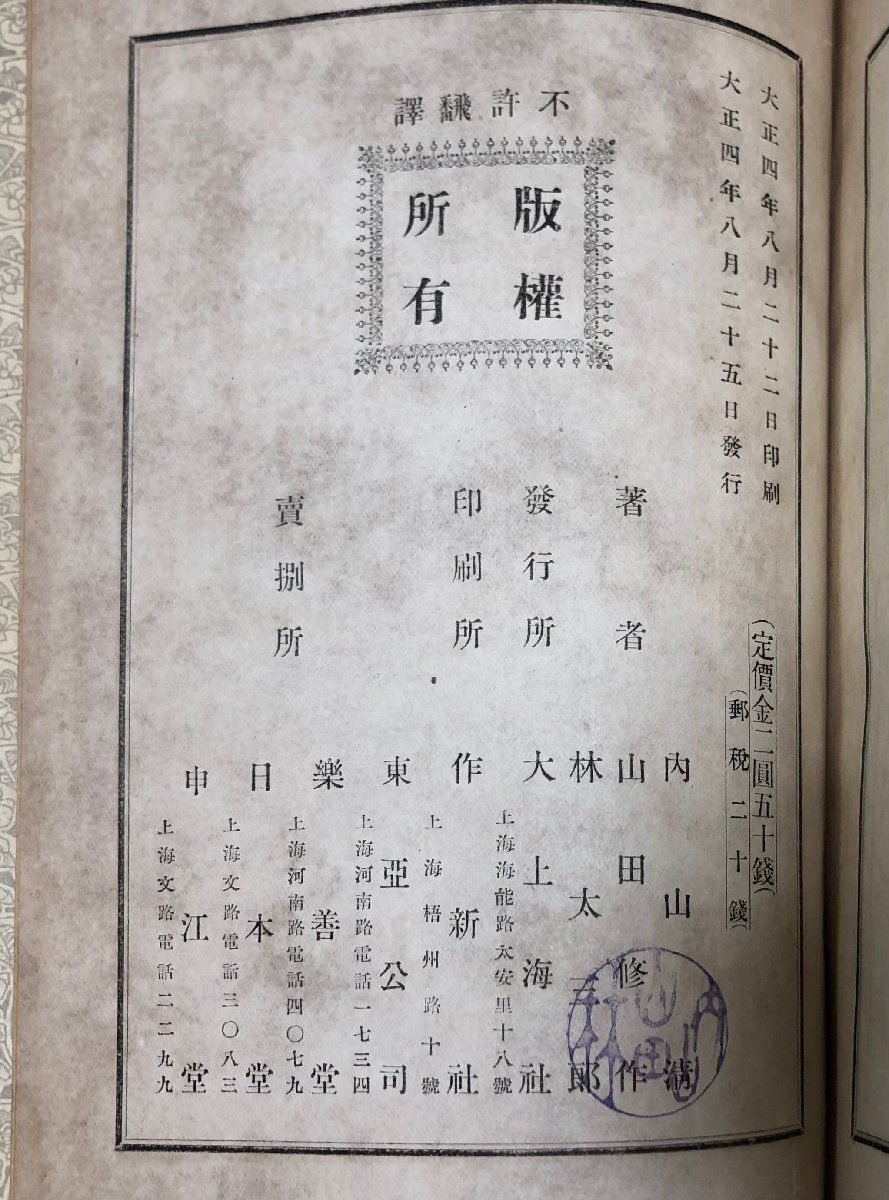 大正四年八月二十二日印刷
大正四年八月二十五日發行
(定價金二圓五十錢)
(郵稅二十錢)
不許飜譯
版權
所有
著者
內山清
山田修作
林太三郎
發行所
大上海社
上海海能路太安里十八號
印刷所
作新社
上海梧州路十號
賣捌所
東亞公司
上海河南路電話一七三四
樂善堂
上海河南路電話四〇七九
日本堂
上海文路電話三〇八三
申江堂
上海文路電話二二九九